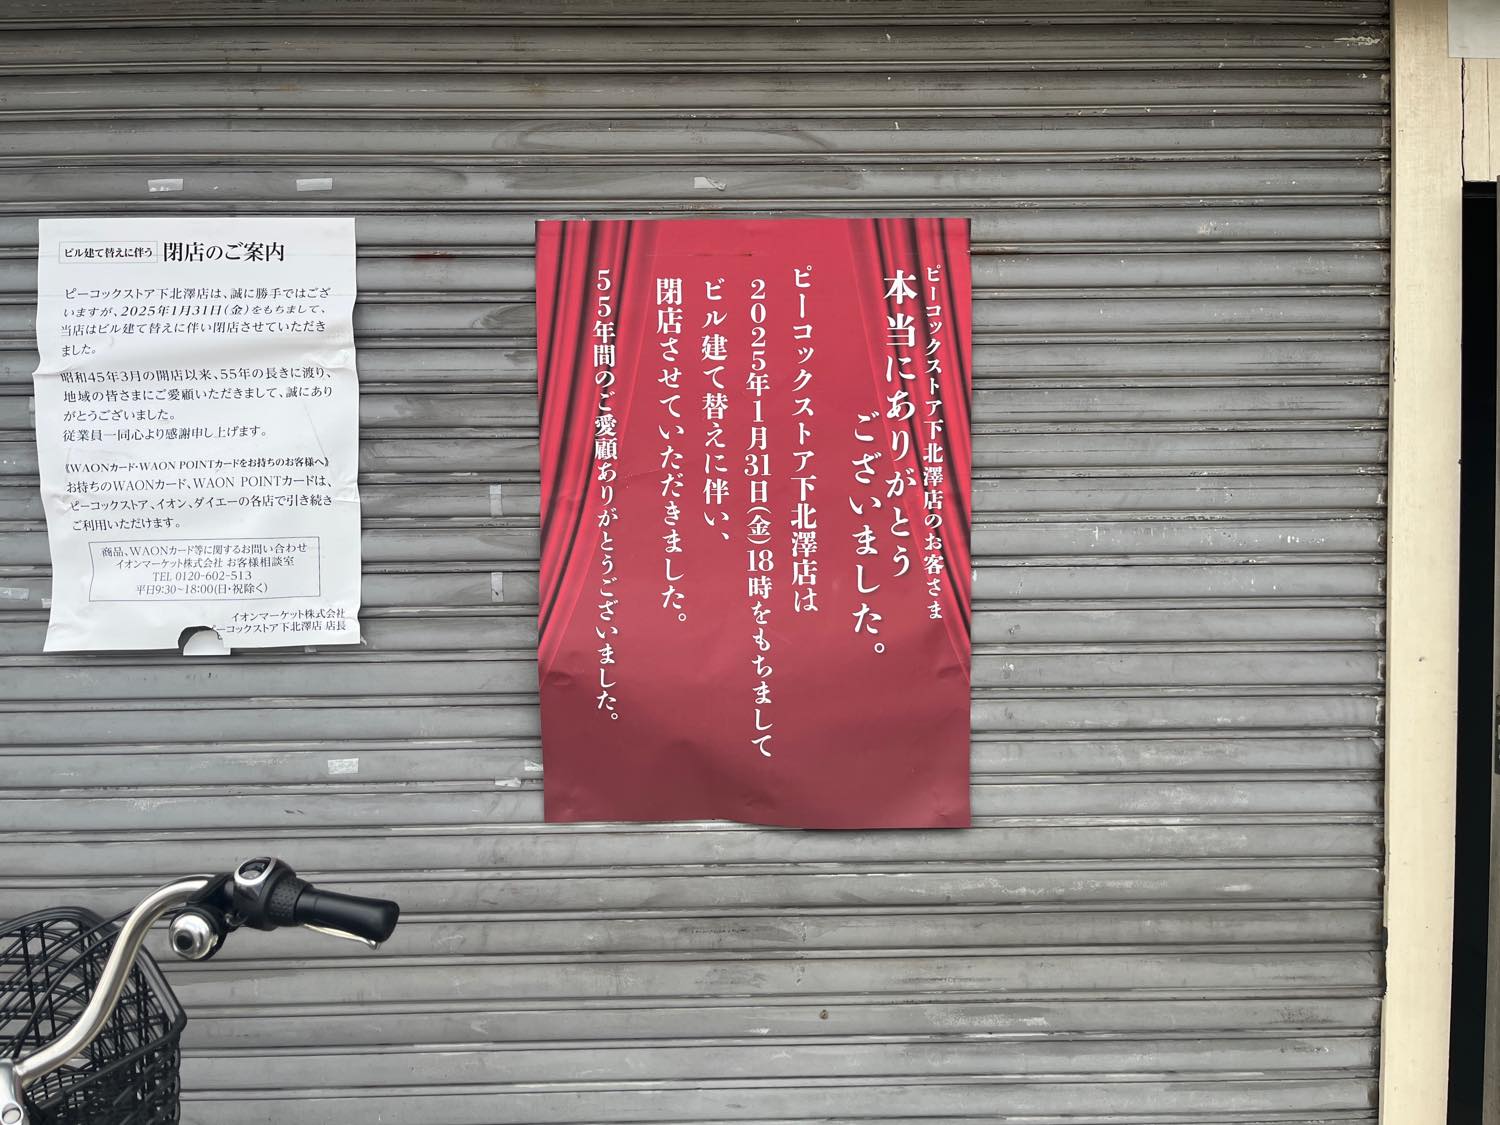 ビル建て替えに伴う 閉店のご案内
ピーコックストア下北澤店は、誠に勝手ではござ
いますが、2025年1月31日(金)をもちまして、
当店はビル建て替えに伴い閉店させていただき
ました。
昭和45年3月の開店以来、55年の長きに渡り、
地域の皆さまにご愛顧いただきまして、誠にあり
がとうございました。
従業員一同心より感謝申し上げます。
《WAONカード・WAON POINTカードをお持ちのお客様へ》
お持ちのWAONカード、WAON POINTカードは、
ピーコックストア、イオン、ダイエーの各店で引き続き
ご利用いただけます。
商品、WAONカード等に関するお問い合わせ
イオンマーケット株式会社 お客様相談室
TEL 0120-602-513
平日9:30~18:00(日・祝除く)
イオンマーケット株式会社
ピーコックストア下北澤店 店長
ピーコックストア下北澤店のお客さま
本当にありがとう
ございました。
ピーコックストア下北澤店は
2025年1月31日(金)18時をもちまして
ビル建て替えに伴い、
閉店させていただきました。
55年間のご愛顧ありがとうございました。